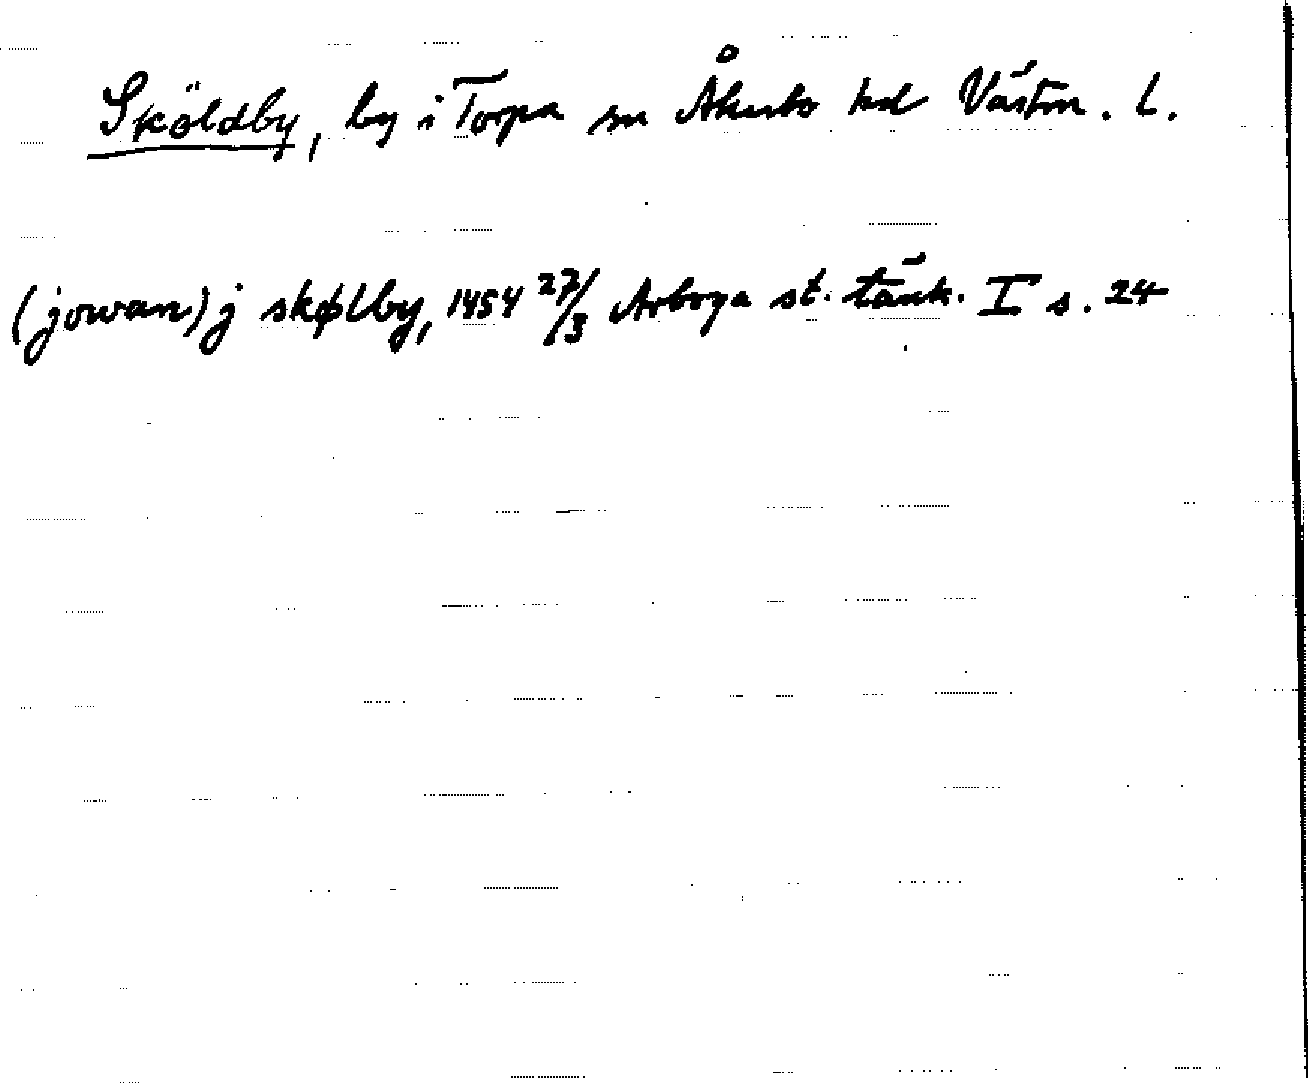 Sköldby, by i Torpa sn Åkerbo hd Västm. l.
(jowan) j skølby, 1454 27/3 Arboga st. tänk. I s. 24